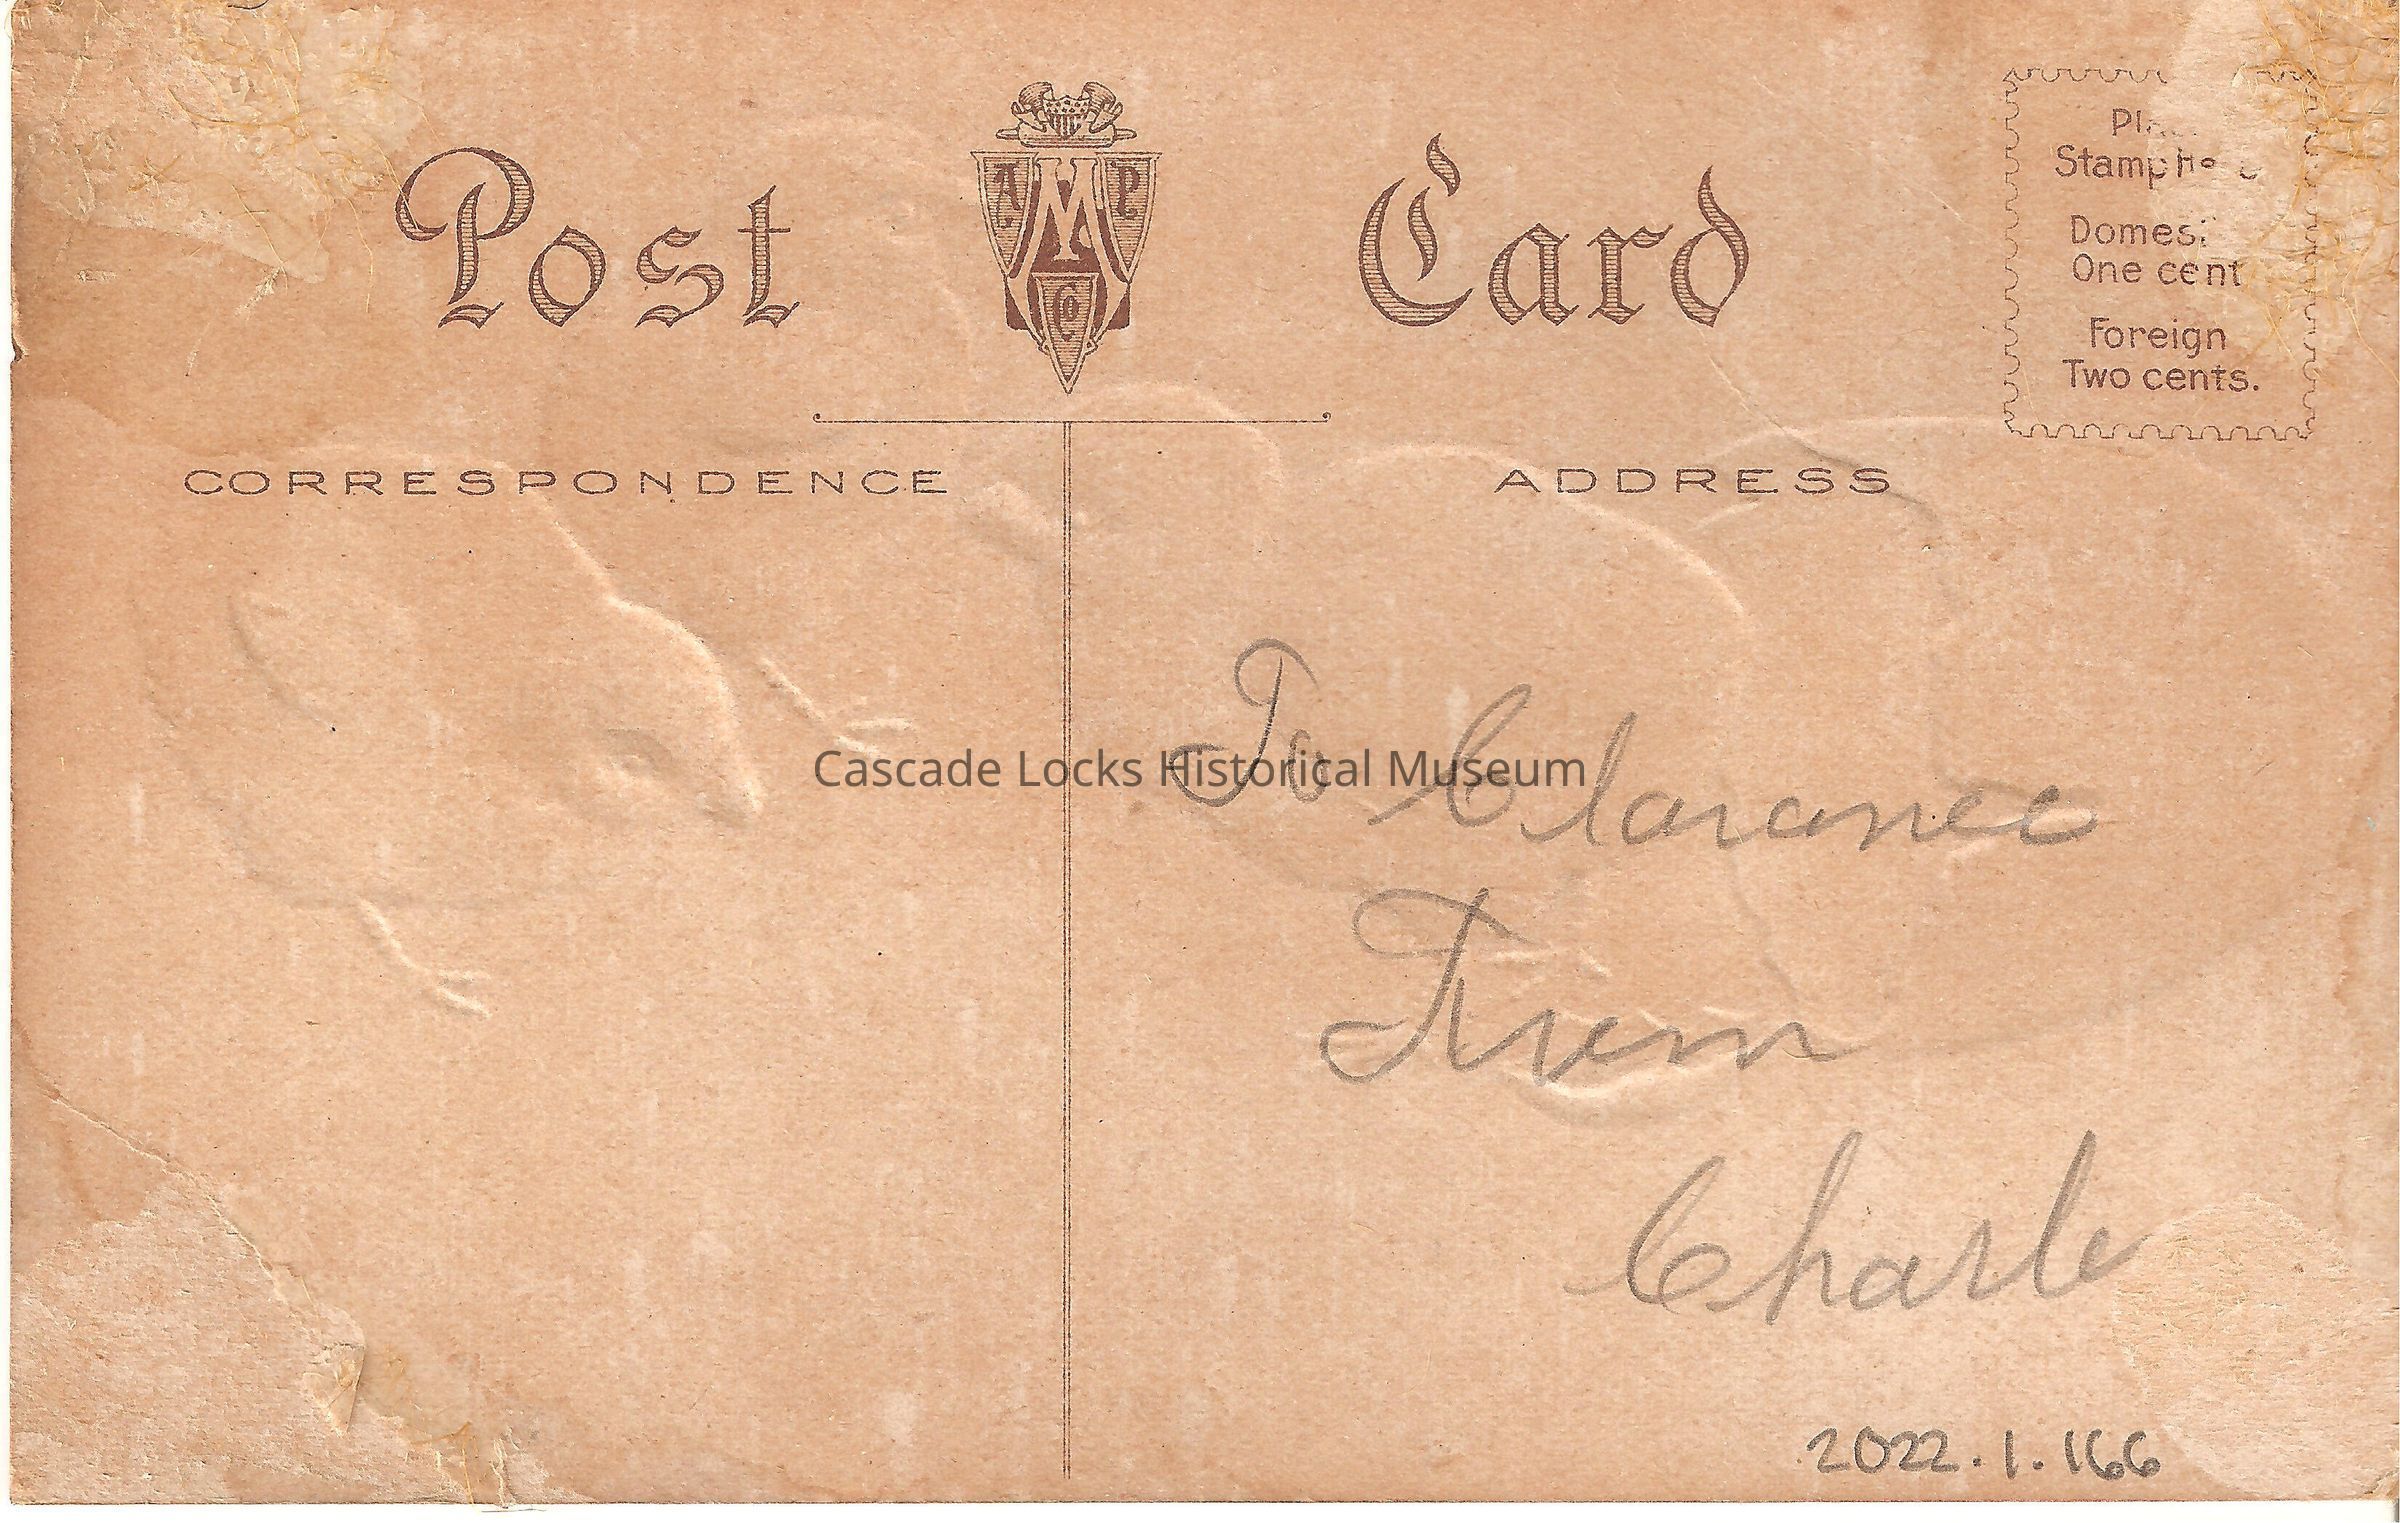 Post Card
A M P Co
Stamp
One cent
Foreign
Two cents.
CORRESPONDENCE
ADDRESS
Cascade Locks Historical Museum
To Claranee
Frem
Charle
2022.1.166